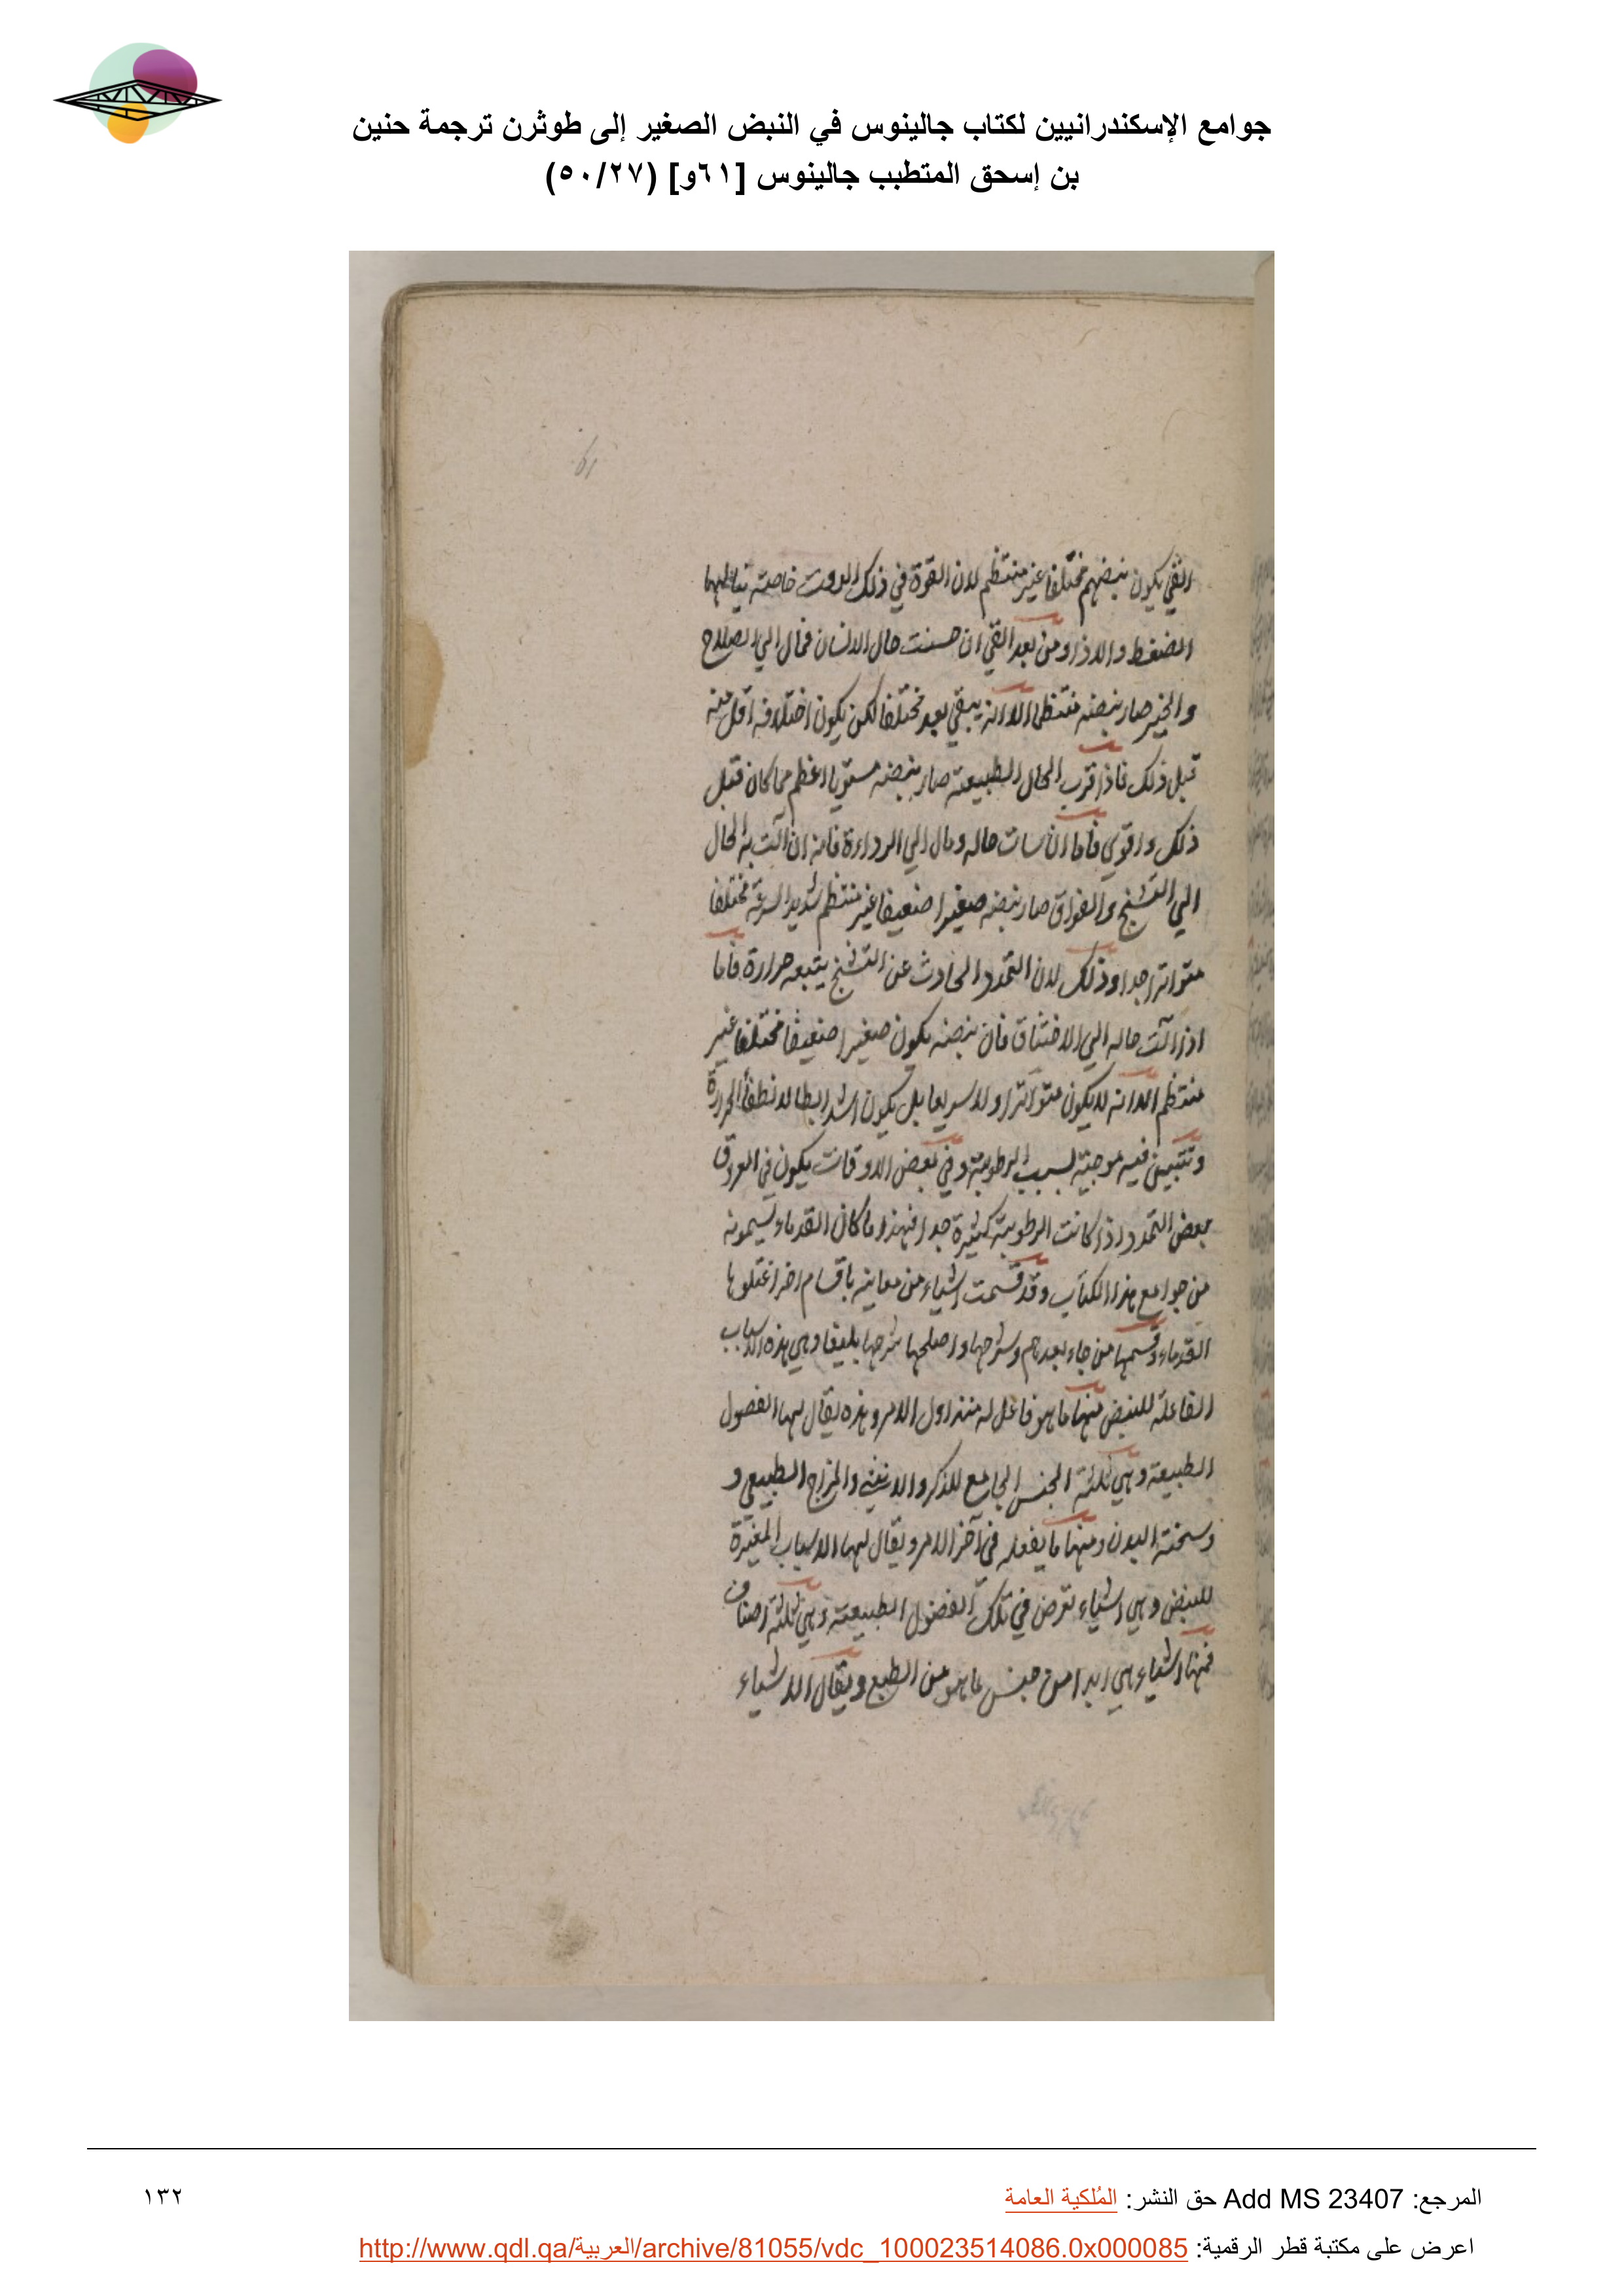 جوامع الإسكندرانيين لكتاب جالينوس في النبض الصغير إلى طوثرن ترجمة حنين
بن إسحق المتطبب جالينوس [٦١و] (٥٠/٢٧)
61
القي يكون نبضهم مختلفا غير منتظم لان القوة في ذلك الوقت خاصة ينالها
الضغط والاذا ومن بعد القي ان حسنت حال الانسان فمال الي الصلاح
والخير صار نبضه منتظما الا انه يبقي بعد مختلفا لكن يكون اختلافه اقل منه
قبل ذلك فاذا قرب الحال الطبيعية صار نبضه مستويا اعظم مما كان قبل
ذلك واقوي فاما ان سات حاله ومال الي الرداءة فانه ان آلت به الحال
الي التشنج والفواق صار نبضه صغيرا ضعيفا غير منتظم شديد السرعة مختلفا
متواترا جدا وذلك لان التمدد الحادث عن التشنج يتبعه حرارة فاما
اذا آلت حاله الي الاختناق فان نبضه يكون صغيرا ضعيفا مختلفا غير
منتظم الا انه لا يكون متواترا ولا سريعا بل يكون اشد ابطا لانطفأ الحرارة
وتتبين فيه موجية لسبب الرطوبة وفي بعض الاوقات يكون في العروق
بعض التمدد اذا كانت الرطوبة كثيرة جدا فهذا ما كان القدماء يسمونه
من جوامع هذا الكتاب وقد قسمت اشياء من معاينه باقسام اخر اغفلوها
القدماء وقسمها من جاء بعدهم وشرحها واصلحها شرحها بليغا وهي هذه الاسباب
الفاعلة للنبض منها ما هو فاعل له منذ اول الامر وهذه يقال لها الفصول
الطبيعية وهي ثلثة الجنس الجامع للذكر والانثي والمزاج الطبيعي و
وسحنة البدن ومنها ما يفعله في آخر الامر ويقال لها الاسباب المغيرة
للنبض وهي اشياء تعرض في تلك الفصول الطبيعية وهي ثلثة اصناف
فمنها اشياء هي ابدا من جنس ما هو من الطبع ويقال الاشياء
المرجع: Add MS 23407 حق النشر: المُلكية العامة
١٣٢
اعرض على مكتبة قطر الرقمية: http://www.qdl.qa/العربية/archive/81055/vdc_100023514086.0x000085